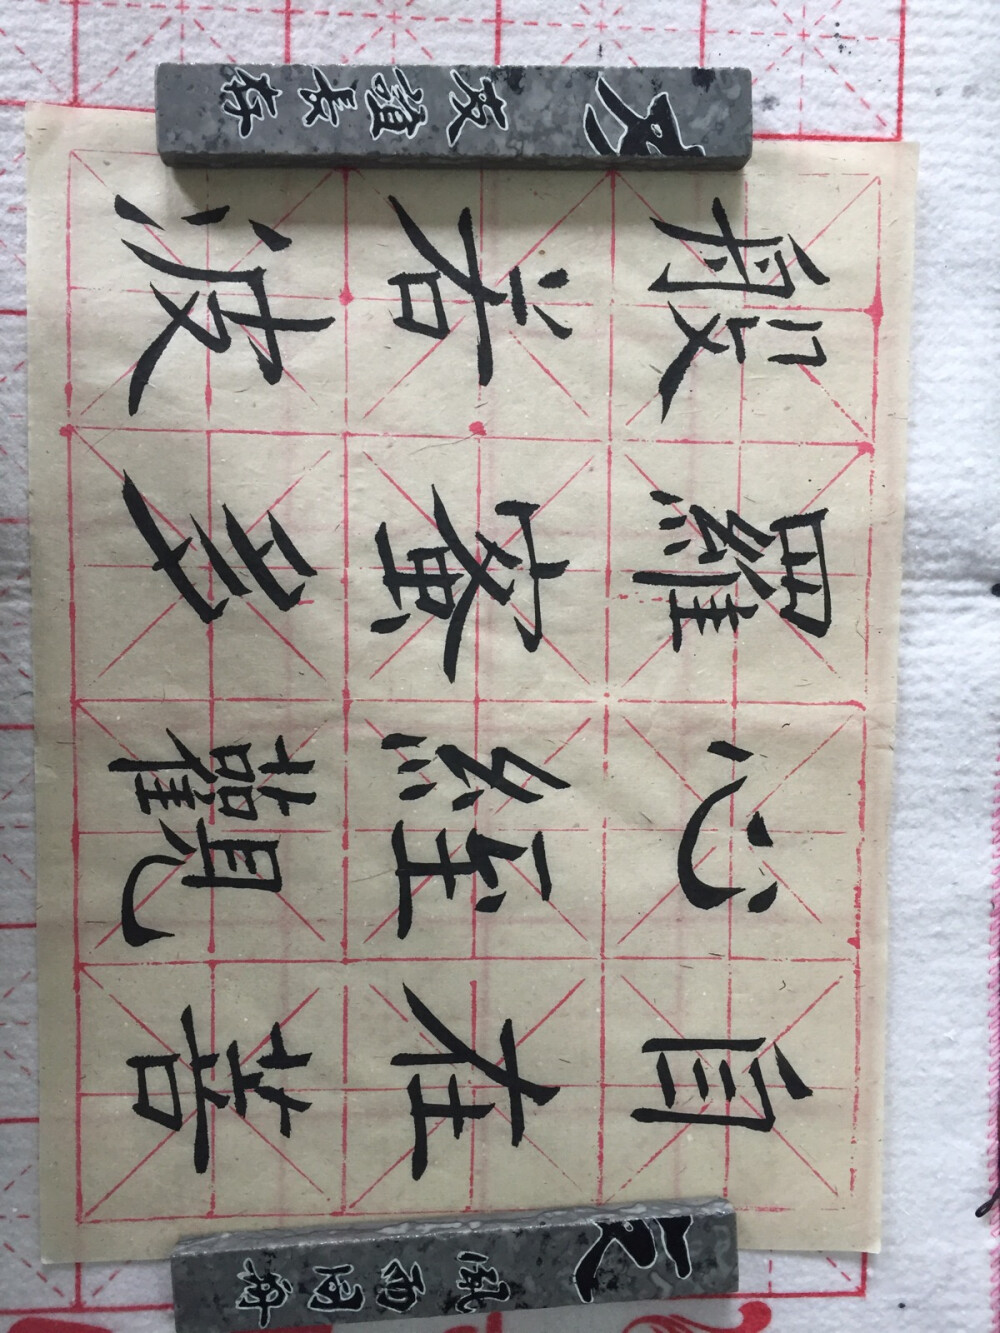 友誼長存
般若波
羅蜜多
心經觀
自在菩
風雨同舟